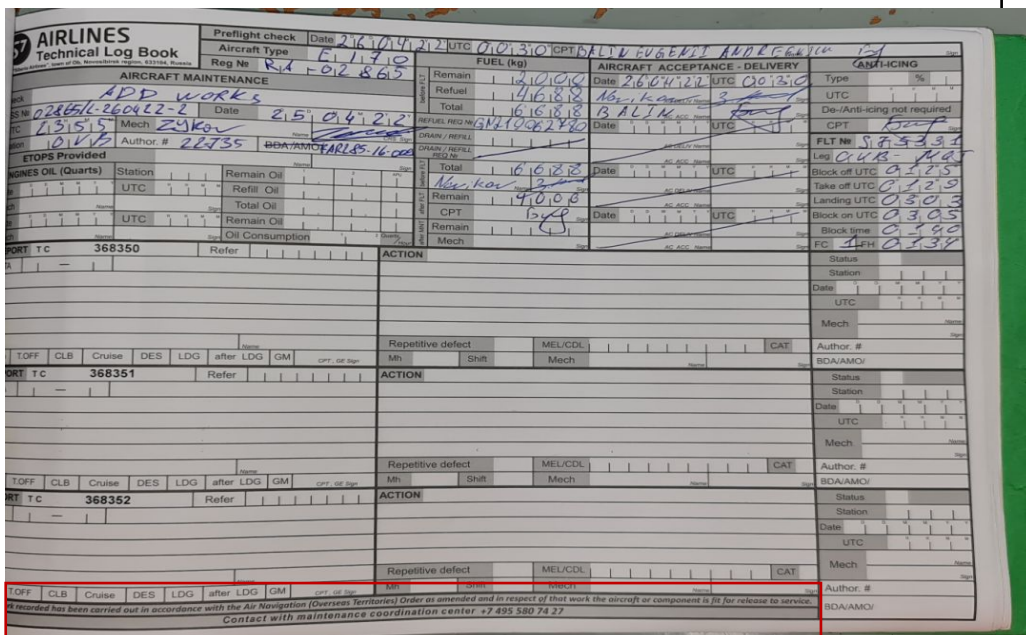 S7 AIRLINES
Technical Log Book
town of Ob, Novosibirsk region, 633104, Russia
Preflight check Date 26 04 22 UTC 00 30 CPT BALIN EVGENII
Aircraft Type E170
Reg № RA-02865
AIRCRAFT MAINTENANCE
ADD WORKS
02865/L-260422-2 Date 25 04 22
2355 Mech Zykov
OVB Author. # 22735 BDA/AMO
ETOPS Provided
ENGINES OIL (Quarts) Station Remain Oil
UTC Refill Oil
Total Oil
UTC Remain Oil
Oil Consumption
FUEL (kg)
before FLT Remain 2000
Refuel 4688
Total 6688
REFUEL REQ №
DRAIN / REFILL
DRAIN / REFILL REQ №
Total 6688
Novikov
after FLT Remain 4000
CPT
Remain
after MNT Mech
AIRCRAFT ACCEPTANCE - DELIVERY
Date 260422 UTC 0030
Novikov
Date BALIN UTC
Date UTC
ANTI-ICING
Type %
UTC
De-/Anti-icing not required
CPT
FLT №
Leg
Block off UTC 0125
Take off UTC 0129
Landing UTC 0303
Block on UTC 0305
Block time 0140
FC 1 FH 0134
REPORT TC 368350 Refer ACTION Status
Station
Date
UTC
Mech
Repetitive defect MEL/CDL CAT
T.OFF CLB Cruise DES LDG after LDG GM CPT, GE Sign Mh Shift Mech Author. #
BDA/AMO/
REPORT TC 368351 Refer ACTION Status
Station
Date
UTC
Mech
Repetitive defect MEL/CDL CAT Author. #
T.OFF CLB Cruise DES LDG after LDG GM CPT, GE Sign Mh Shift Mech BDA/AMO/
REPORT TC 368352 Refer ACTION Status
Station
Date
UTC
Mech
Repetitive defect MEL/CDL CAT
T.OFF CLB Cruise DES LDG after LDG GM CPT, GE Sign Mh Shift Mech Author. #
recorded has been carried out in accordance with the Air Navigation (Overseas Territories) Order as amended and in respect of that work the aircraft or component is fit for release to service.
Contact with maintenance coordination center +7 495 580 74 27
BDA/AMO/